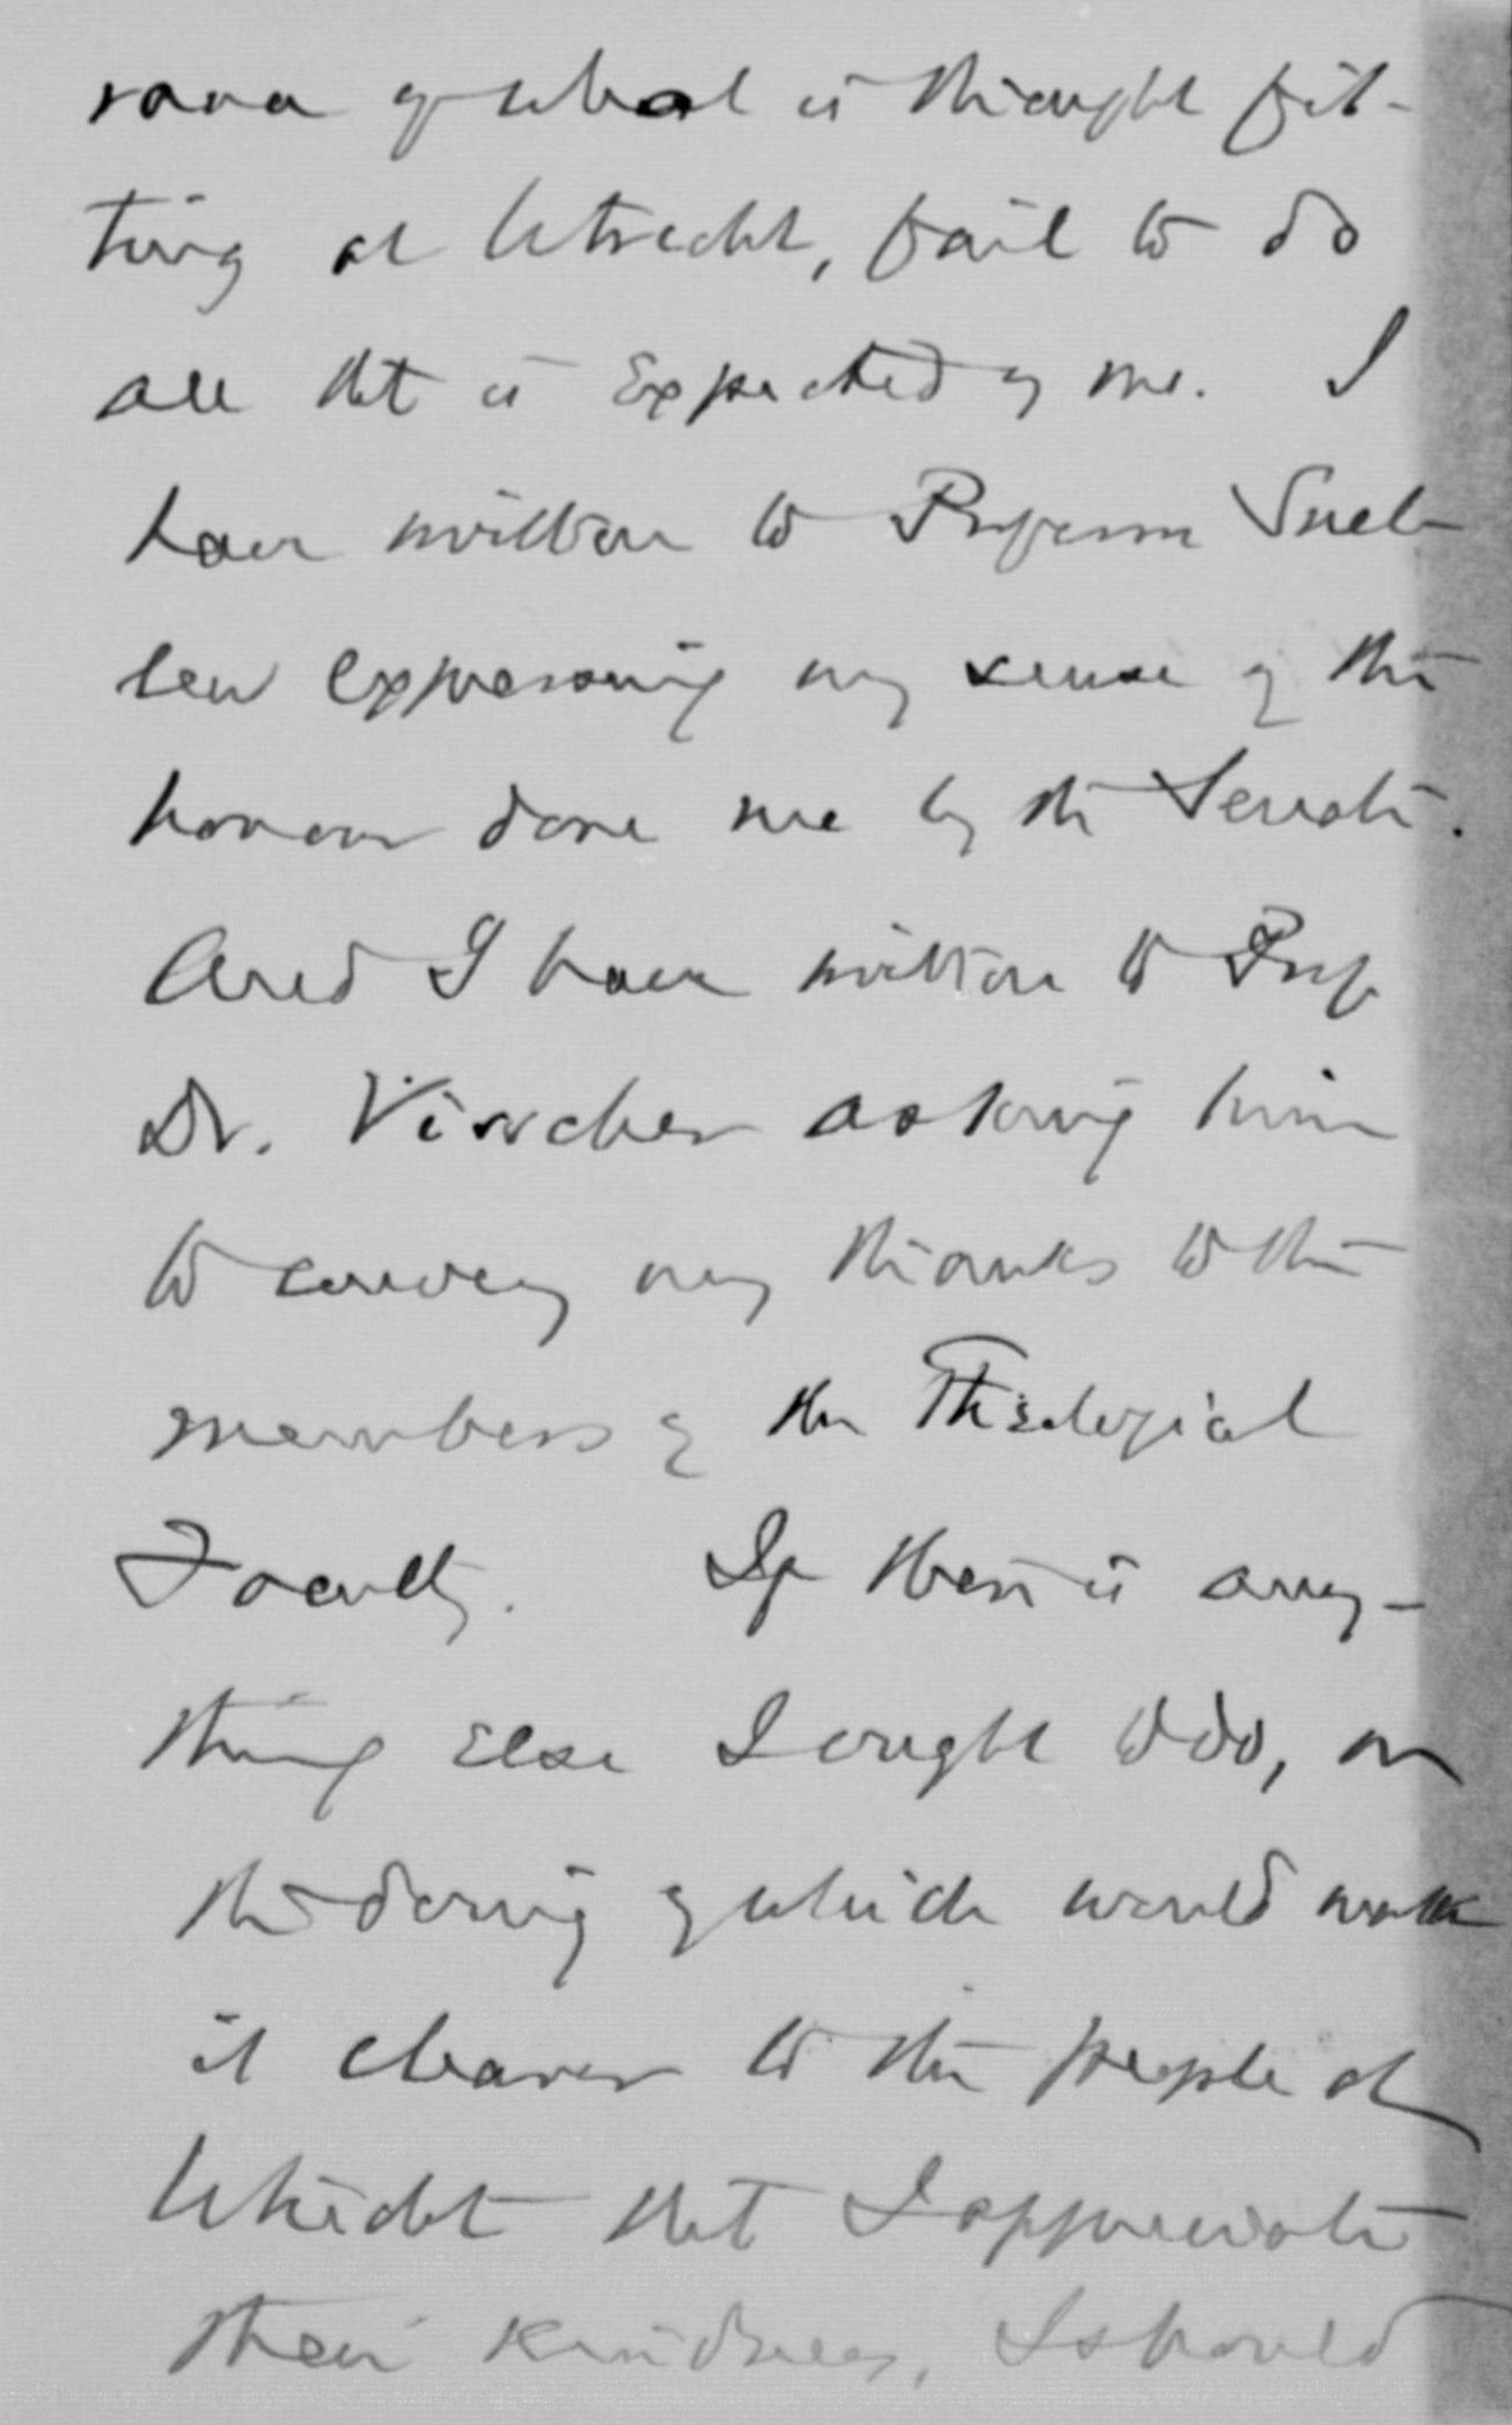 rance of what is thought fit-
ting at Utrecht, fail to do
all that is expected of me. I
have written to Professor Snel-
len expressing my sense of the
honour done me by the Senate.
And I have written to Prof
Dr. Visscher asking him
to convey my thanks to the
members of the Theological
Faculty. If there is any-
thing else I ought to do, or
the doing of which would make
it clearer to the people at
Utrecht that I appreciate
their kindness, I should